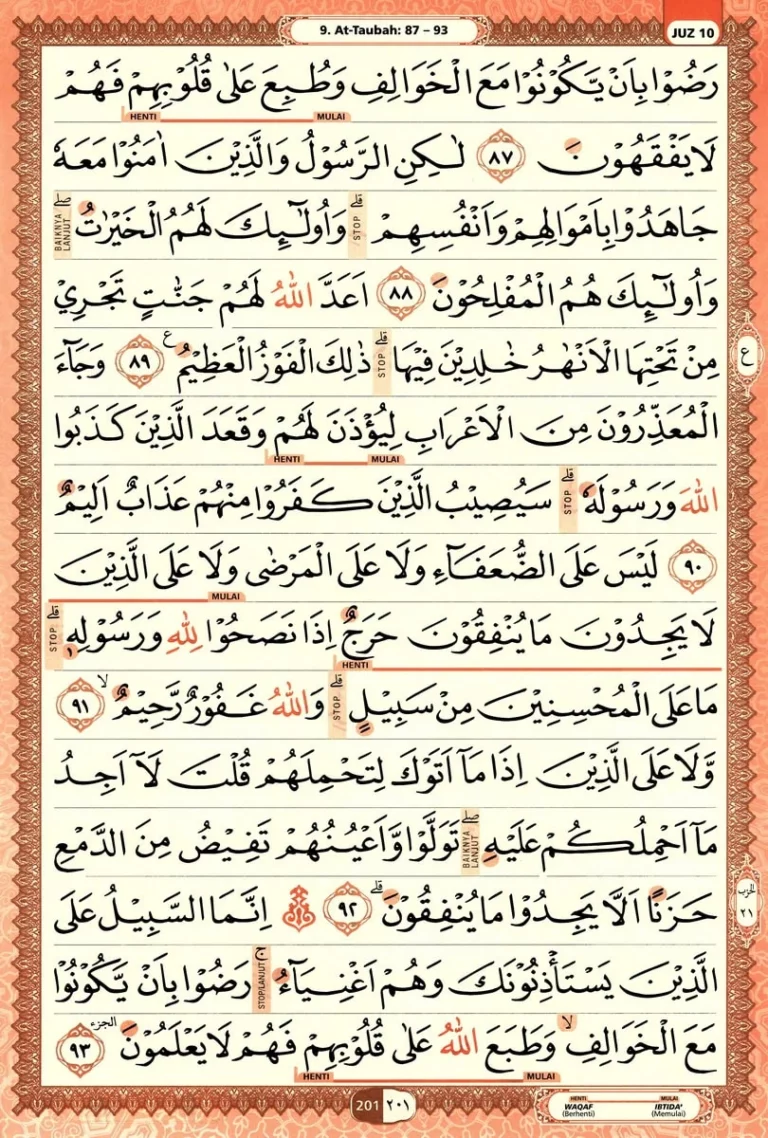 9. At-Taubah: 87 – 93
JUZ 10
رَضُوْا بِاَنْ يَّكُوْنُوْا مَعَ الْخَوَالِفِ وَطُبِعَ عَلٰى قُلُوْبِهِمْ فَهُمْ
HENTI MULAI
لَا يَفْقَهُوْنَ ٨٧ لٰكِنِ الرَّسُوْلُ وَالَّذِيْنَ اٰمَنُوْا مَعَهٗ
جَاهَدُوْا بِاَمْوَالِهِمْ وَاَنْفُسِهِمْ ۗ STOP وَاُولٰۤىِٕكَ لَهُمُ الْخَيْرٰتُ ۖ BAIKNYA LANJUT
وَاُولٰۤىِٕكَ هُمُ الْمُفْلِحُوْنَ ٨٨ اَعَدَّ اللّٰهُ لَهُمْ جَنّٰتٍ تَجْرِيْ
مِنْ تَحْتِهَا الْاَنْهٰرُ خٰلِدِيْنَ فِيْهَا ۗ STOP ذٰلِكَ الْفَوْزُ الْعَظِيْمُ ع ٨٩ وَجَاۤءَ
ع
الْمُعَذِّرُوْنَ مِنَ الْاَعْرَابِ لِيُؤْذَنَ لَهُمْ وَقَعَدَ الَّذِيْنَ كَذَبُوا
HENTI MULAI
اللّٰهَ وَرَسُوْلَهٗ ۗ STOP سَيُصِيْبُ الَّذِيْنَ كَفَرُوْا مِنْهُمْ عَذَابٌ اَلِيْمٌ
٩٠ لَيْسَ عَلَى الضُّعَفَاۤءِ وَلَا عَلَى الْمَرْضٰى وَلَا عَلَى الَّذِيْنَ
MULAI
لَا يَجِدُوْنَ مَا يُنْفِقُوْنَ حَرَجٌ اِذَا نَصَحُوْا لِلّٰهِ وَرَسُوْلِهٖ ۗ STOP
HENTI
مَا عَلَى الْمُحْسِنِيْنَ مِنْ سَبِيْلٍ ۗ STOP وَاللّٰهُ غَفُوْرٌ رَّحِيْمٌ ۙ ٩١
وَّلَا عَلَى الَّذِيْنَ اِذَا مَآ اَتَوْكَ لِتَحْمِلَهُمْ قُلْتَ لَآ اَجِدُ
مَآ اَحْمِلُكُمْ عَلَيْهِ ۖ BAIKNYA LANJUT تَوَلَّوْا وَّاَعْيُنُهُمْ تَفِيْضُ مِنَ الدَّمْعِ
حَزَنًا اَلَّا يَجِدُوْا مَا يُنْفِقُوْنَ ۗ ٩٢ ۞ اِنَّمَا السَّبِيْلُ عَلَى
الحزب
٢١
الَّذِيْنَ يَسْتَأْذِنُوْنَكَ وَهُمْ اَغْنِيَاۤءُ ۚ STOP/LANJUT رَضُوْا بِاَنْ يَّكُوْنُوْا
مَعَ الْخَوَالِفِ ۙ وَطَبَعَ اللّٰهُ عَلٰى قُلُوْبِهِمْ فَهُمْ لَا يَعْلَمُوْنَ الجزء ٩٣
HENTI MULAI
201 ٢٠١
HENTI MULAI
WAQAF IBTIDA'
(Berhenti) (Memulai)